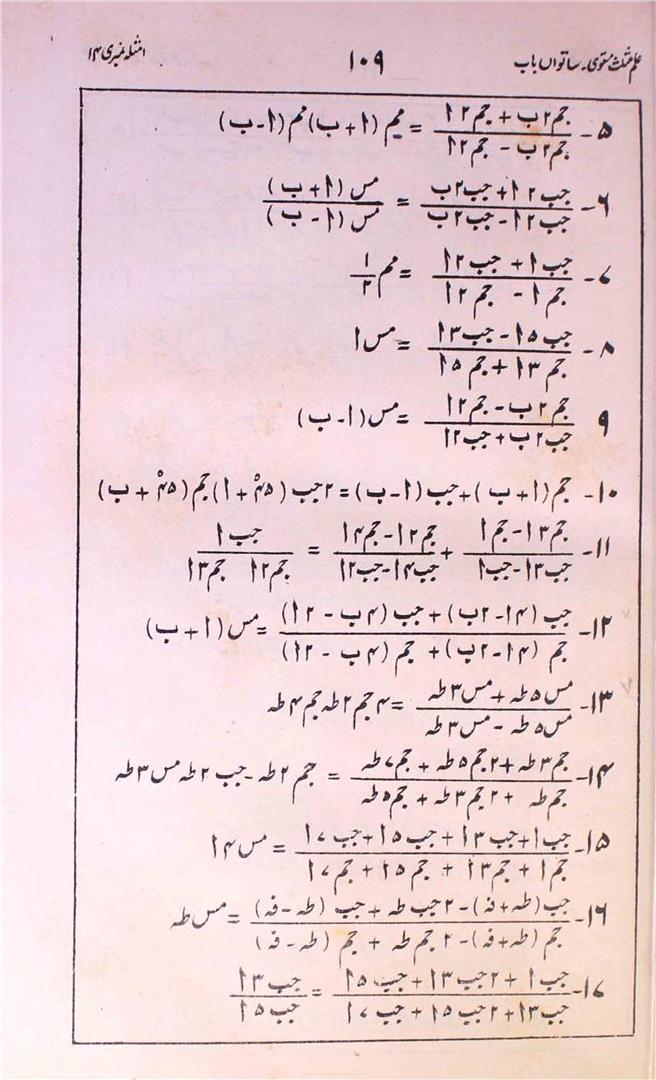 علم مثلث مستوی۔ ساتواں باب ۱۰۹ امثلہ نمبری ۱۴
۵- (جم ۲ب + جم ۲ا)/(جم ۲ب - جم ۲ا) = مم (ا + ب) مم (ا - ب)
۶- (جب ۲ا + جب ۲ب)/(جب ۲ا - جب ۲ب) = مس (ا + ب)/مس (ا - ب)
۷- (جب ا + جب ۲ا)/(جم ا - جم ۲ا) = مم ا/۲
۸- (جب ۵ا - جب ۳ا)/(جم ۳ا + جم ۵ا) = مس ا
۹ (جم ۲ب - جم ۲ا)/(جب ۲ب + جب ۲ا) = مس (ا - ب)
۱۰- جم (ا + ب) + جب (ا - ب) = ۲ جب (۴۵° + ا) جم (۴۵° + ب)
۱۱- (جم ۳ا - جم ا)/(جب ۳ا - جب ا) + (جم ۲ا - جم ۴ا)/(جب ۴ا - جب ۲ا) = جب ا/(جم ۲ا جم ۳ا)
۱۲- (جب (۴ا - ۲ب) + جب (۴ب - ۲ا))/(جم (۴ا - ۲ب) + جم (۴ب - ۲ا)) = مس (ا + ب)
۱۳- (مس ۵طہ + مس ۳طہ)/(مس ۵طہ - مس ۳طہ) = ۴ جم ۲طہ جم ۴طہ
۱۴- (جم ۳طہ + ۲ جم ۵طہ + جم ۷طہ)/(جم طہ + ۲ جم ۳طہ + جم ۵طہ) = جم ۲طہ - جب ۲طہ مس ۳طہ
۱۵- (جب ا + جب ۳ا + جب ۵ا + جب ۷ا)/(جم ا + جم ۳ا + جم ۵ا + جم ۷ا) = مس ۴ا
۱۶- (جب (طہ + فہ) - ۲ جب طہ + جب (طہ - فہ))/(جم (طہ + فہ) - ۲ جم طہ + جم (طہ - فہ)) = مس طہ
۱۷- (جب ا + ۲ جب ۳ا + جب ۵ا)/(جب ۳ا + ۲ جب ۵ا + جب ۷ا) = جب ۳ا/جب ۵ا